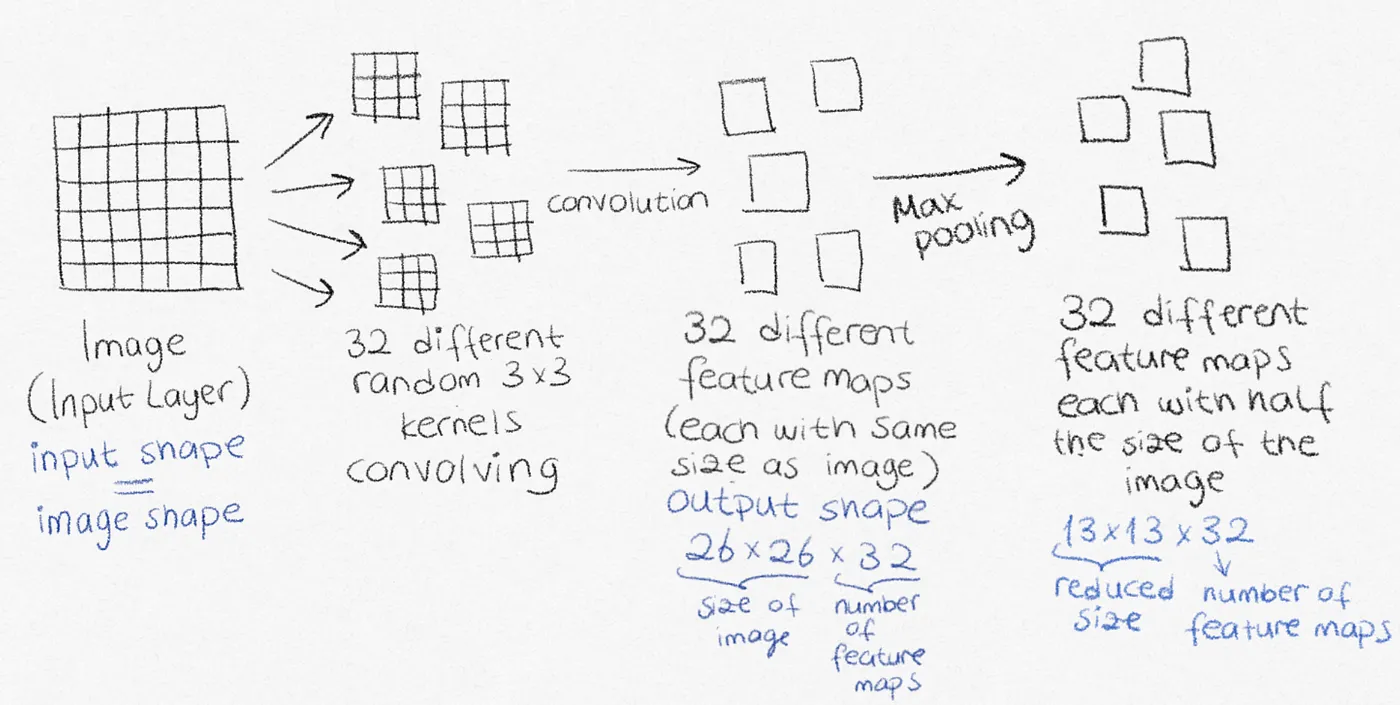 Image
(Input Layer)
input shape
=
image shape
32 different
random 3x3
kernels
convolving
convolution
32 different
feature maps
(each with same
size as image)
output shape
26 x 26 x 32
size of
image
number
of
feature
maps
Max
pooling
32 different
feature maps
each with half
the size of the
image
13x13 x 32
reduced
size
number of
feature maps